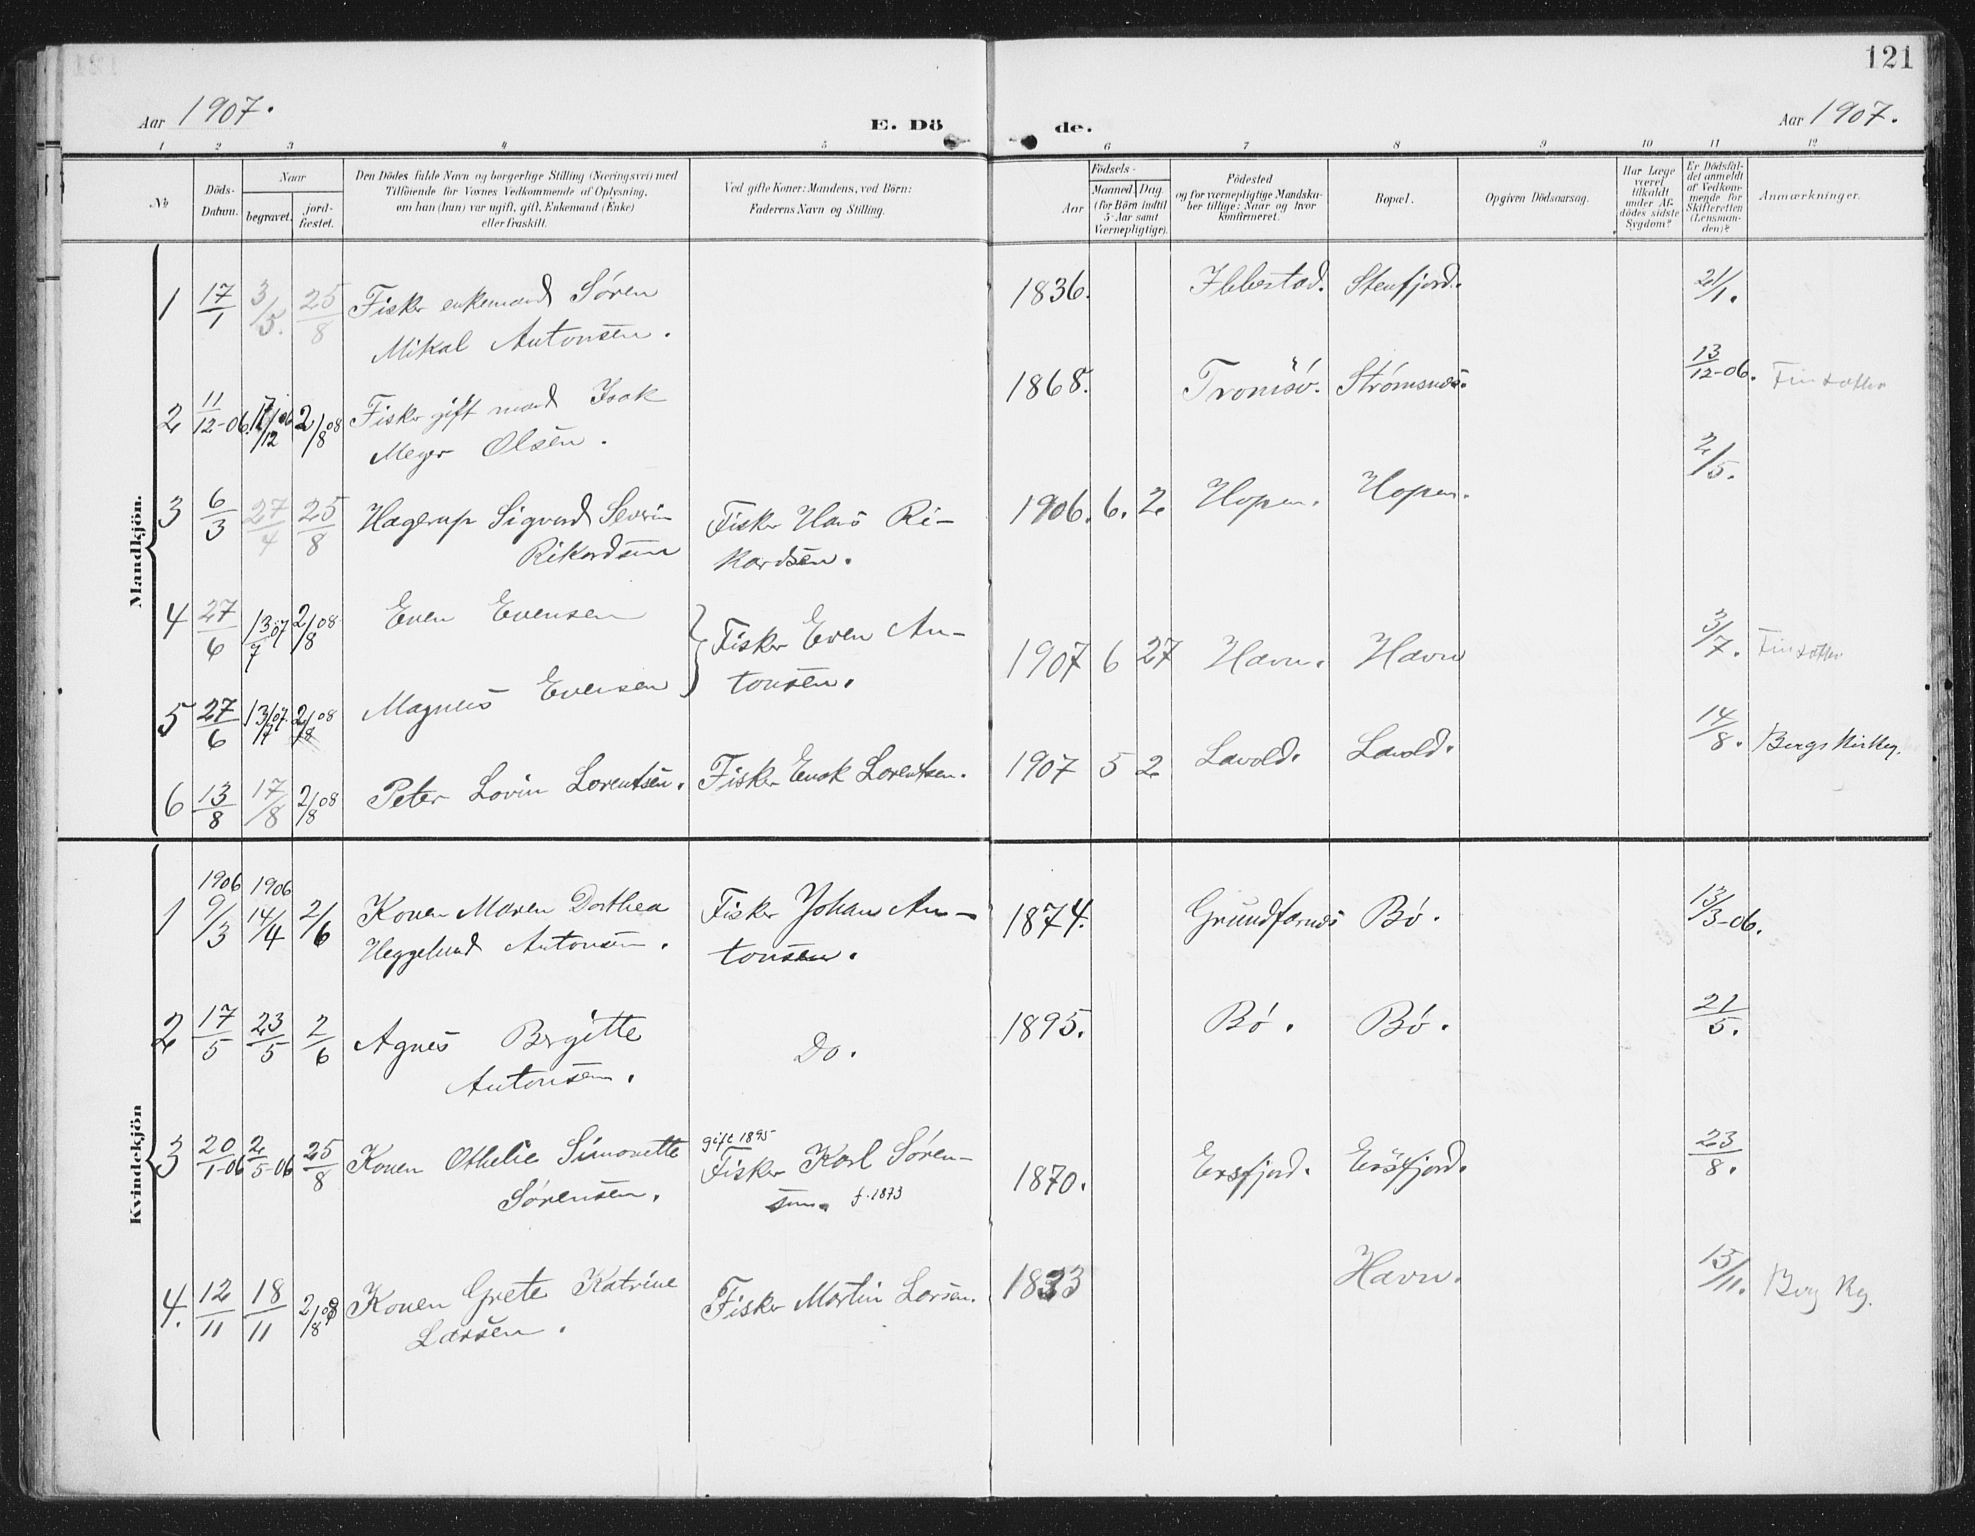 121
Aar 1907.
E. Dö
de.
Aar 1907.
1 2 3 4 5 6 7 8 9 10 11 12
No
Döds-
Datum.
Naar
begravet.
jord-
fæstet.
Den Dödes fulde Navn og borgerlige Stilling (Næringsvei) med
Tilföiende for Voxnes Vedkommende af Oplysning,
om han (hun) var ugift, gift, Enkemand (Enke)
eller fraskilt.
Ved gifte Koner: Mandens, ved Börn:
Faderens Navn og Stilling.
Födsels-
Aar
Maaned
Dag.
(for Börn indtil
5 Aar samt
Værnepligtige).
Födested
og for værnepligtige Mandska-
ber tillige: Naar og hvor
konfirmeret.
Bopæl.
Opgiven Dödsaarsag.
Har Læge
været
tilkaldt
under Af-
dödes sidste
Sygdom?
Er Dödsfal-
det anmeldt
af Vedkom-
mende for
Skifteretten
(Lensman-
den)?
Anmærkninger.
Mandkjön.
1 17/1 3/5. 25/8 Fisker enkemand Søren 1836. Ibbestad. Stenfjord. 21/1.
Mikal Antonsen.
2 11/12-06. 17/12 06 2/8 08 Fisker gift mand Isak 1868. Tromsø. Strømsnes. 13/12-06. Finsæther
Meyer Olsen.
3 6/3 27/4 25/8 Hagerup Sigvard Severin Fisker Hans Ri- 1906. 6. 2. Hopen. Hopen. 2/5.
Rikardsen kardsen.
4 27/6 13/7 07 2/8 08 Even Evensen Fisker Even An- 1907 6 27 Havn. Havn 3/7. Finsæther
5 27/6 13/7 07. 2/8 08 Magnus Evensen tonsen.
6 13/8 17/8 2/8 08 Peter Lovin Lorentsen. Fisker Enok Lorentsen. 1907 5 2 Lavold. Lavold. 14/8. Bergs Kirkeg.
Kvindekjön
1906 1906
1 9/3 14/4 2/6 Konen Maren Dorthea Fisker Johan An- 1874. Grundfarnes Bø. 13/3-06.
Heggelund Antonsen. tonsen.
2 17/5 23/5 2/6 Agnes Birgitte Do. 1895. Bø. Bø. 21/5.
Antonsen.
gift 1895
3 20/1-06 2/5-06 25/8 Konen Othelie Simonette Fisker Karl Søren- 1870. Ersfjord. Ersfjord. 23/8.
Sørensen. sen. f. 1873
4. 12/11 18/11 2/8 08 Konen Grete Katrine Fisker Martin Larsen. 1833 Havn. 15/11. Berg Kg.
Larsen.